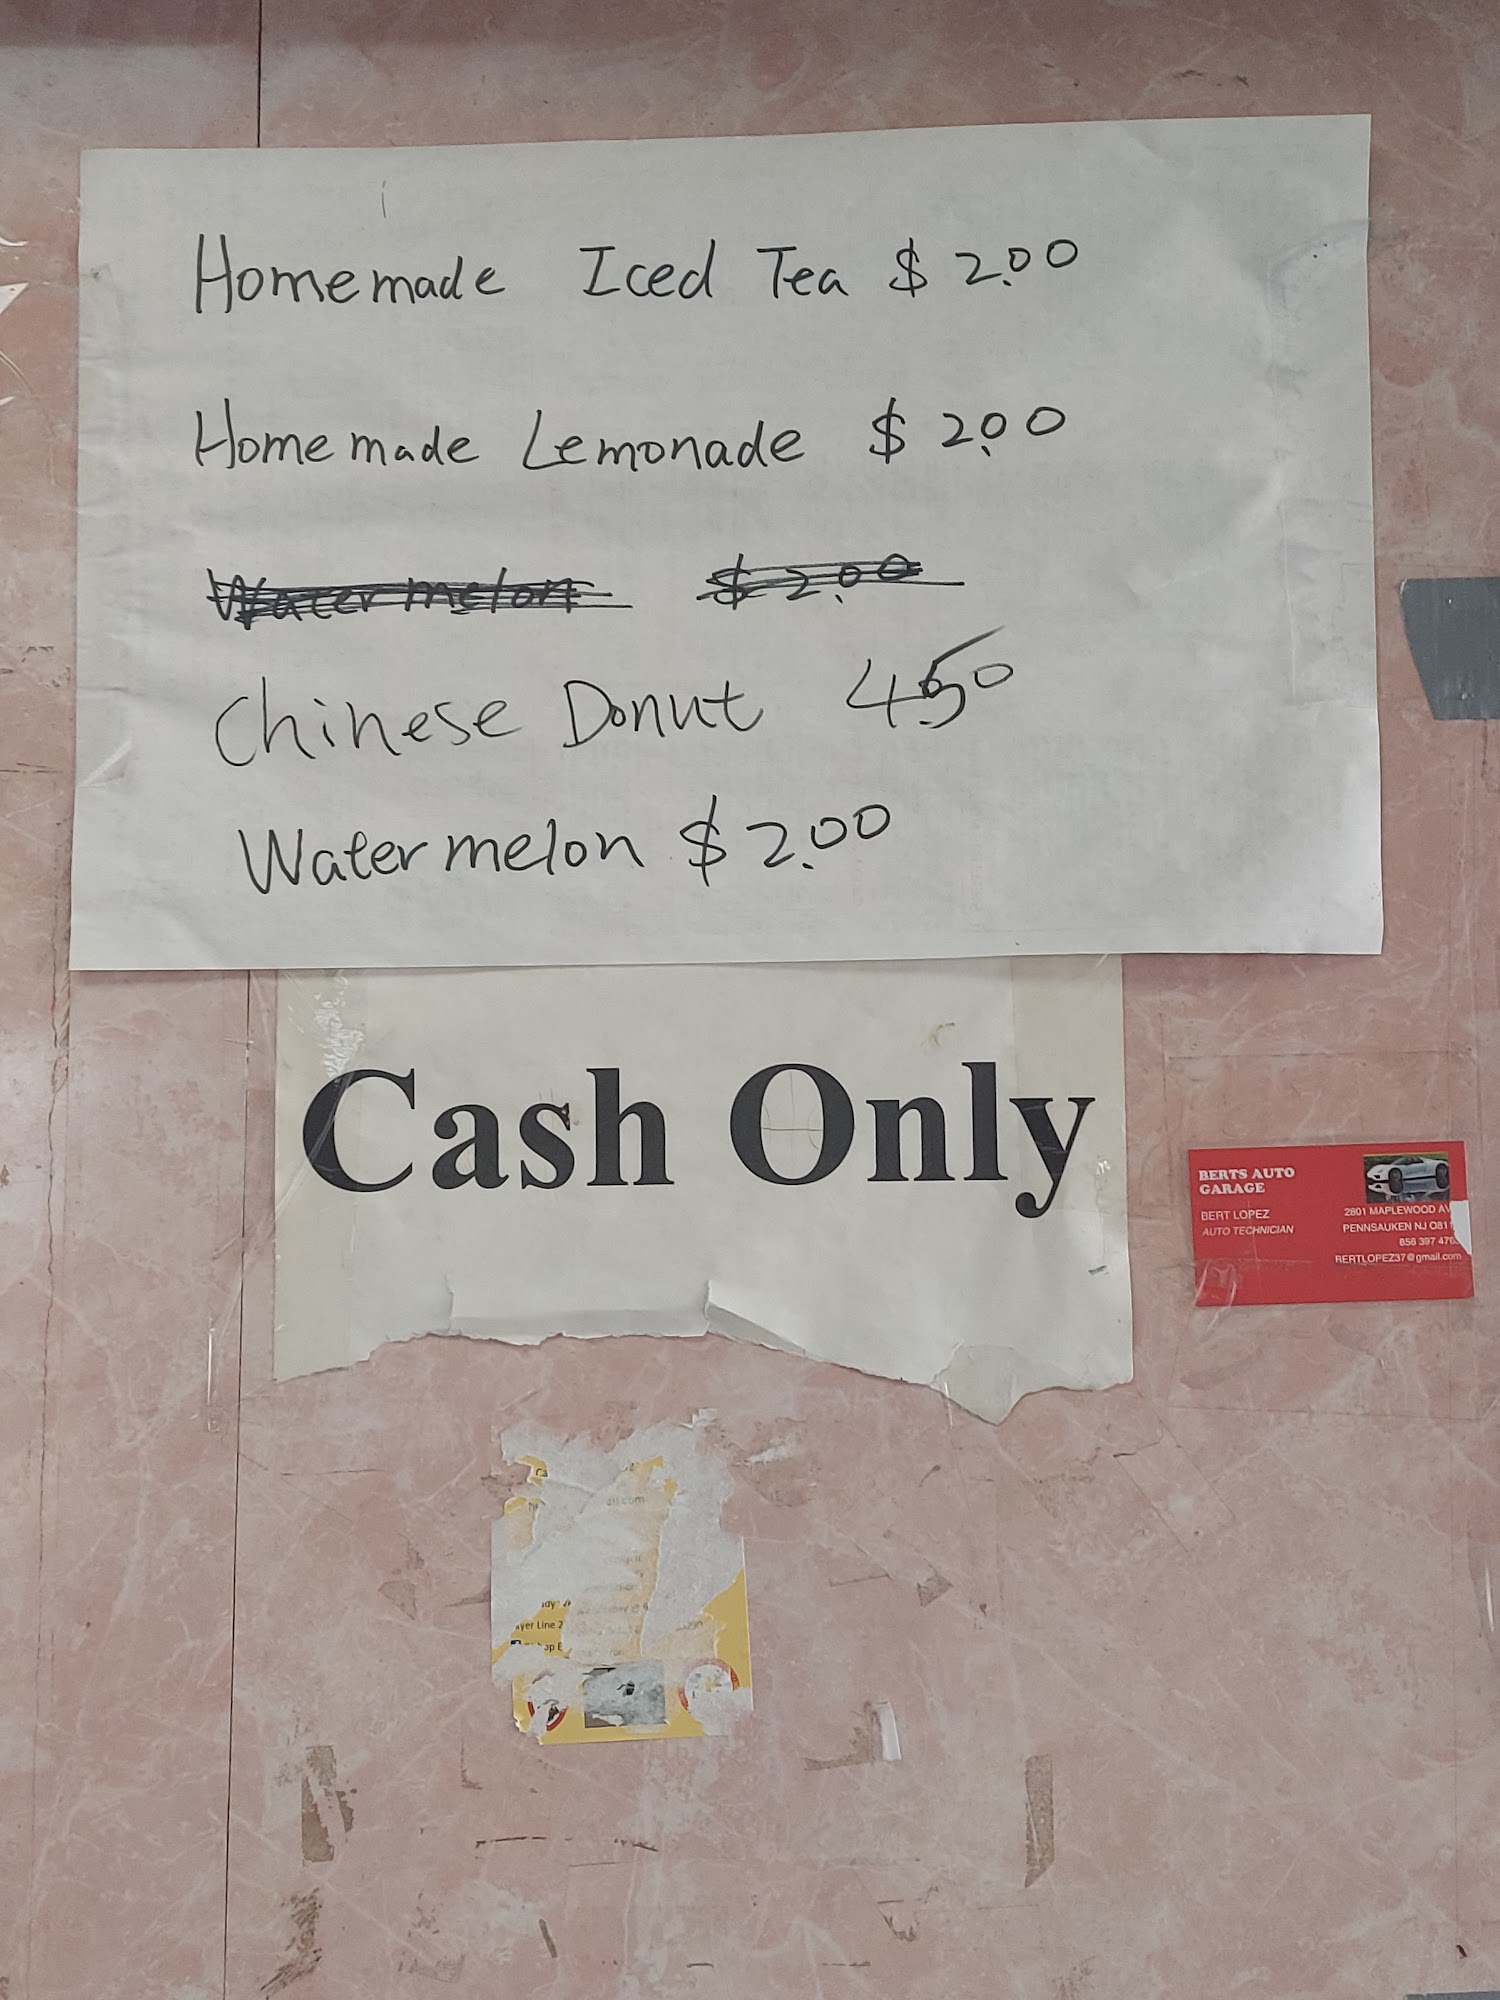 Homemade Iced Tea $ 2.00
Homemade Lemonade $ 2.00
Watermelon $ 2.00
Chinese Donut 4.50
Watermelon $ 2.00
Cash Only
BERTS AUTO
GARAGE
BERT LOPEZ
AUTO TECHNICIAN
2801 MAPLEWOOD AV
PENNSAUKEN NJ 081
856 397 476
BERTLOPEZ37@gmail.com
.com
Line 2